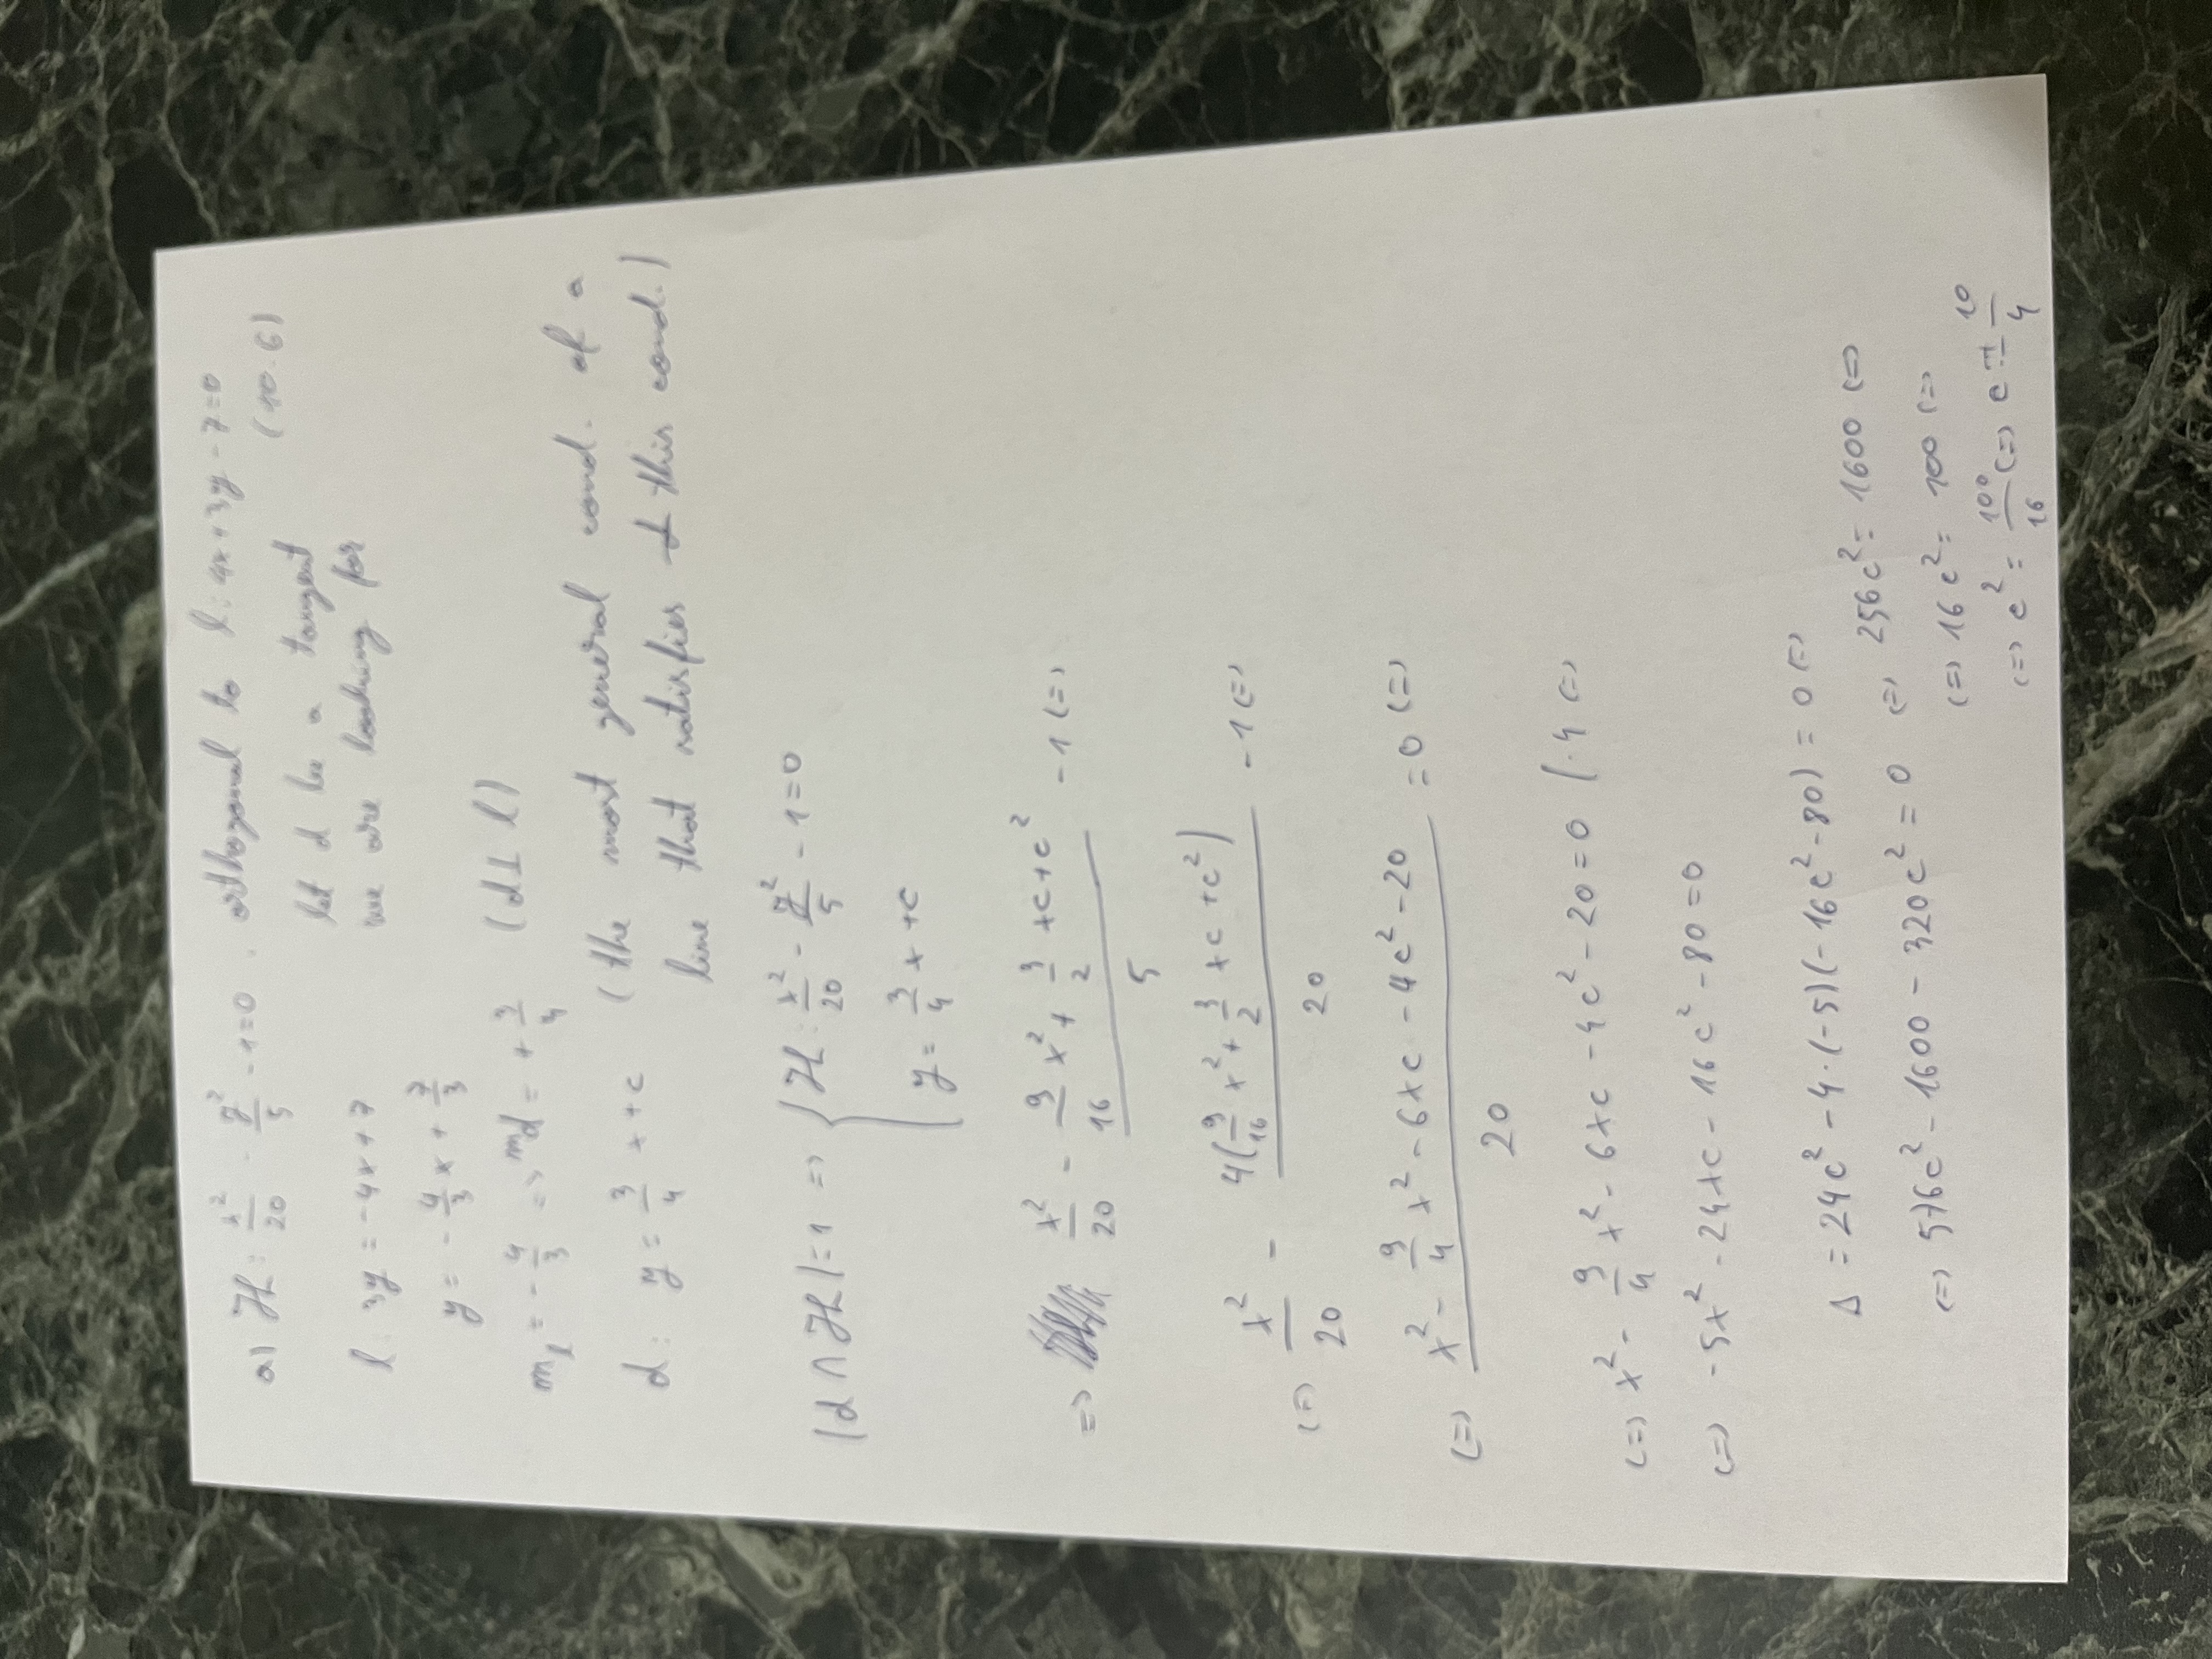 a) H: x²/20 - y²/5 - 1=0 . orthogonal to l: 4x+3y-7=0
(10.6)
let d be a tangent
we are looking for
l: 3y = -4x+7
y = -4/3 x + 7/3
m_l = -4/3 => m_d = +3/4 (d⊥l)
d: y = 3/4 x +c (the most general cond. of a
line that satisfies ⊥ this cond.)
|d ∩ H|=1 => { H: x²/20 - y²/5 - 1=0
y = 3/4 x +c
=> x²/20 - (9/16 x² + 3/2 xc+c²)/5 - 1 (=)
(=) x²/20 - 4(9/16 x² + 3/2 xc +c²)/20 - 1 (=)
(=) (x² - 9/4 x² - 6xc - 4c² - 20)/20 = 0 (=)
(=) x² - 9/4 x² - 6xc - 4c² - 20 = 0 /·4 (=)
(=) -5x² - 24xc - 16c² - 80 = 0
Δ = 24c² - 4·(-5)(-16c²-80) = 0 (=)
(=) 576c² - 1600 - 320c² = 0 (=) 256c² = 1600 (=)
(=) 16c² = 100 (=)
(=) c² = 100/16 (=) c = ± 10/4